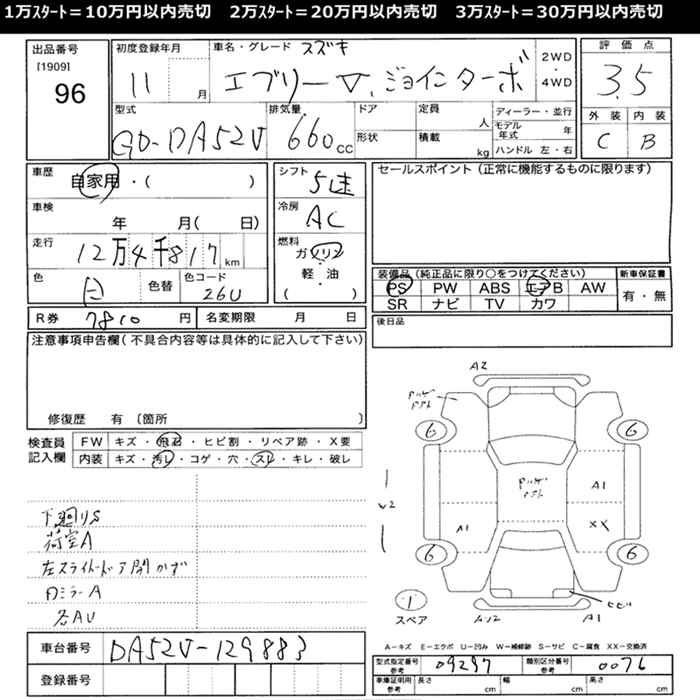 1万ｽﾀｰﾄ＝10万円以内売切　2万ｽﾀｰﾄ＝20万円以内売切　3万ｽﾀｰﾄ＝30万円以内売切
出品番号
[1909]
96
初度登録年月
11 月
車名・グレード スズキ
エブリーV.ジョインターボ
2WD
・
4WD
評価点
3.5
外装 内装
C B
型式
GD-DA52V
排気量
660 CC
ドア
形状
定員 人
積載 kg
ディーラー・並行
モデル年式 年
ハンドル 左・右
車歴
自家用・( )
車検
年 月( 日)
走行
12万4千817 km
色
白
色替
色コード
26U
シフト
5速
冷房
AC
燃料
ガソリン
・
軽・油
( )
セールスポイント（正常に機能するものに限ります）
装備品（純正品に限り○をつけてください）
PS PW ABS エアB AW
SR ナビ TV カワ
新車保証書
有・無
R券 7810 円
名変期限 月 日
後日品
注意事項申告欄(不具合内容等は具体的に記入して下さい)
修復歴 有 〔箇所 〕
検査員
記入欄
FW キズ・飛石・ヒビ割・リペア跡・X要
内装 キズ・汚レ・コゲ・穴・スレ・キレ・破レ
下廻りS
荷室A
左スライドドア
ミラーA
各AU
A2
6
6
A1
A1
XX
W2
6
6
スペア
ヒビ
A1
A-キズ E-エクボ U-凹み W-補修跡 S-サビ C-腐食 XX-交換済
車台番号 DA52V-129883
登録番号
型式指定番号
参考
09297
類別区分番号
参考
0076
車庫証明用
参考
長さ cm 幅 cm 高さ cm